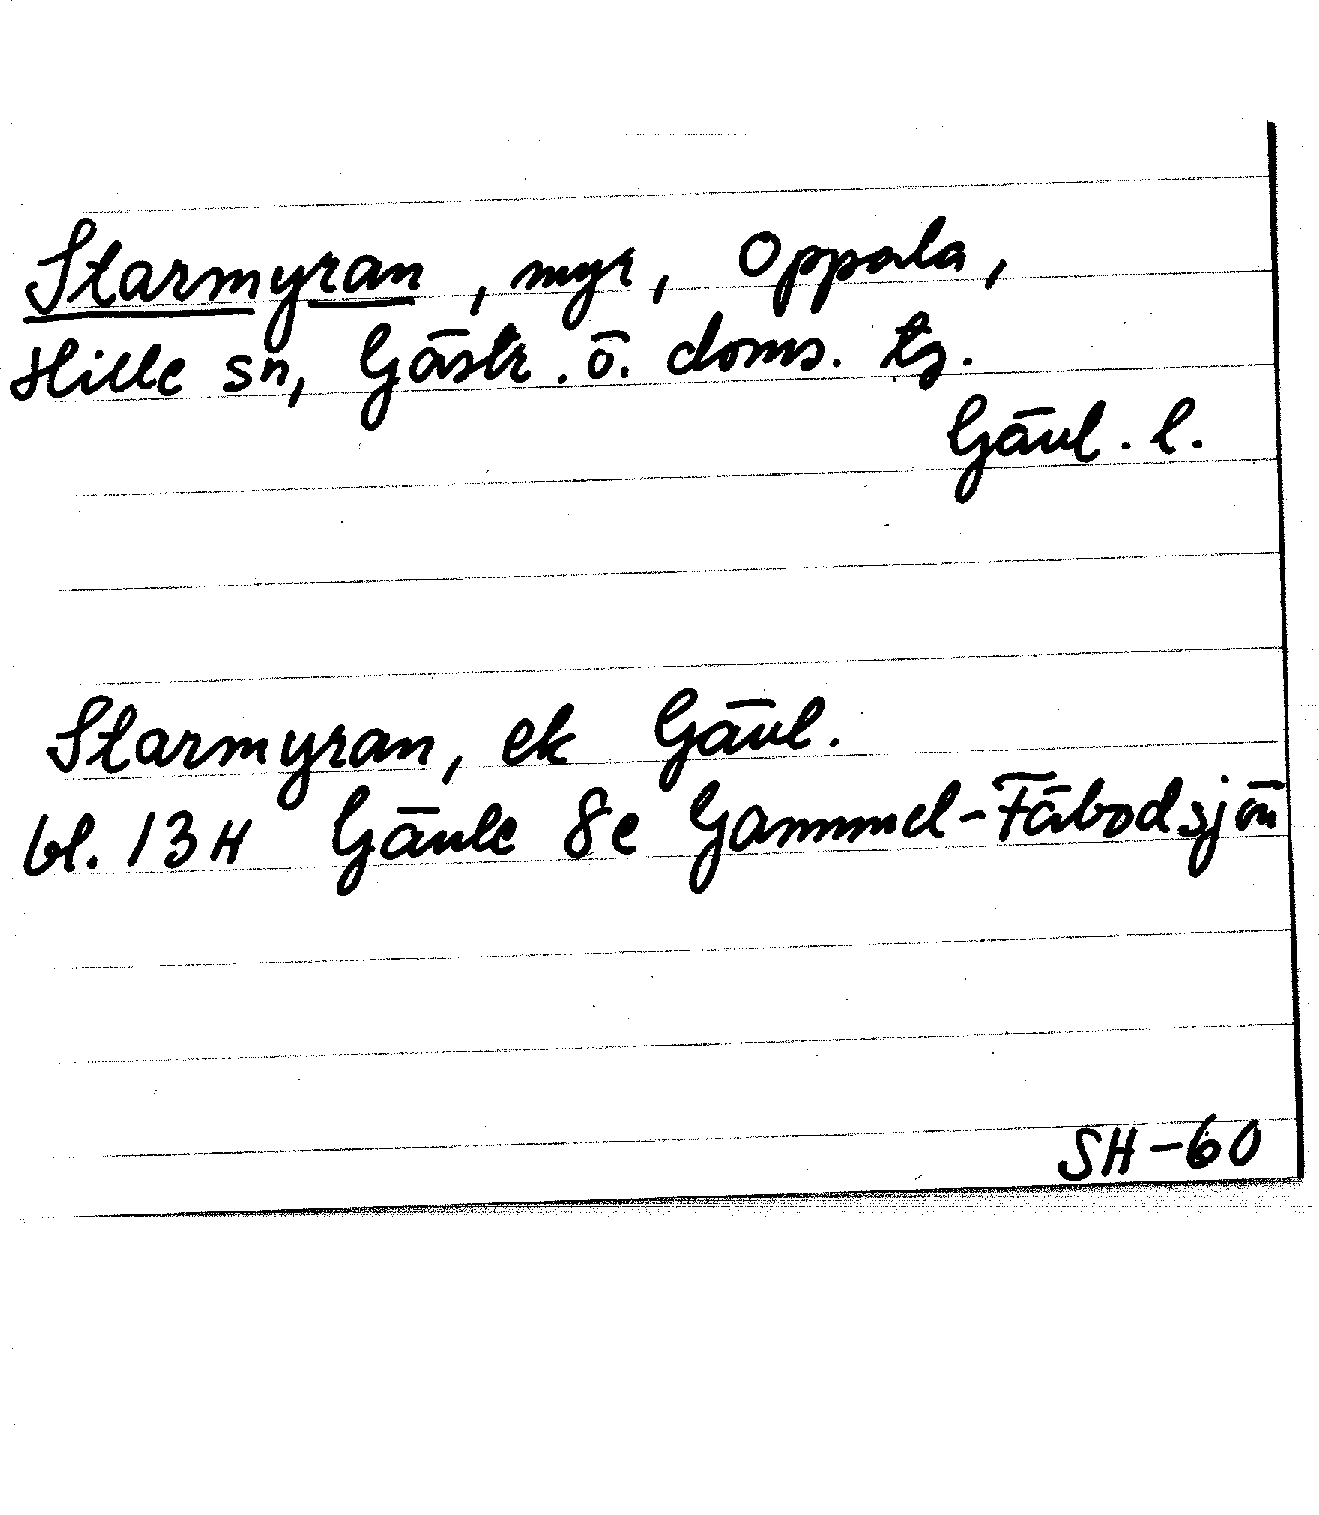 Starmyran, myr, Oppala,
Hille sn, Gästr. ö. doms. tg.
Gävl. l.
Starmyran, ek Gävl.
bl. 13H Gävle 8e Gammel-Fäbodsjön
SH-60